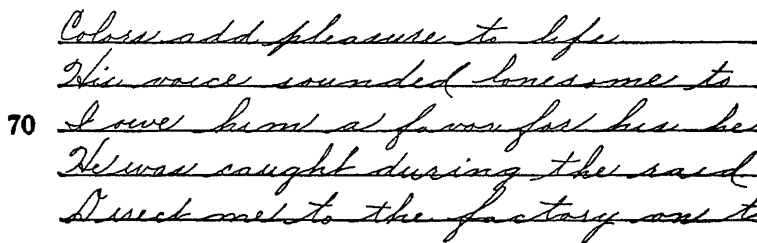 Colors add pleasure to life
His voice sounded lonesome to
70 I owe him a favor for his
He was caught during the raid
Direct me to the factory on